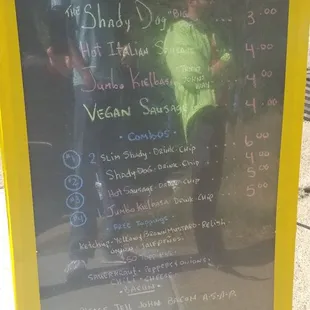 THE Shady Dog "BIG" .... 3.00
Hot Italian Sausage .... 4.00
Jumbo Kielbasa .... 4.00
VEGAN SAUSAGE .... 4.00
• COMBOS •
#1 2 SLIM SHADY • DRINK • CHIP 6.00
SHADY DOG • DRINK • CHIP 4.00
HOT SAUSAGE • DRINK • CHIP 5.00
Jumbo Kielbasa • DRINK • CHIP 5.00
FREE TOPPINGS
Ketchup • Yellow/Brown Mustard • Relish
ONION • JALEPENOS
SAUERKRAUT • PEPPERS & ONIONS
CHILI • CHEESE
BACON